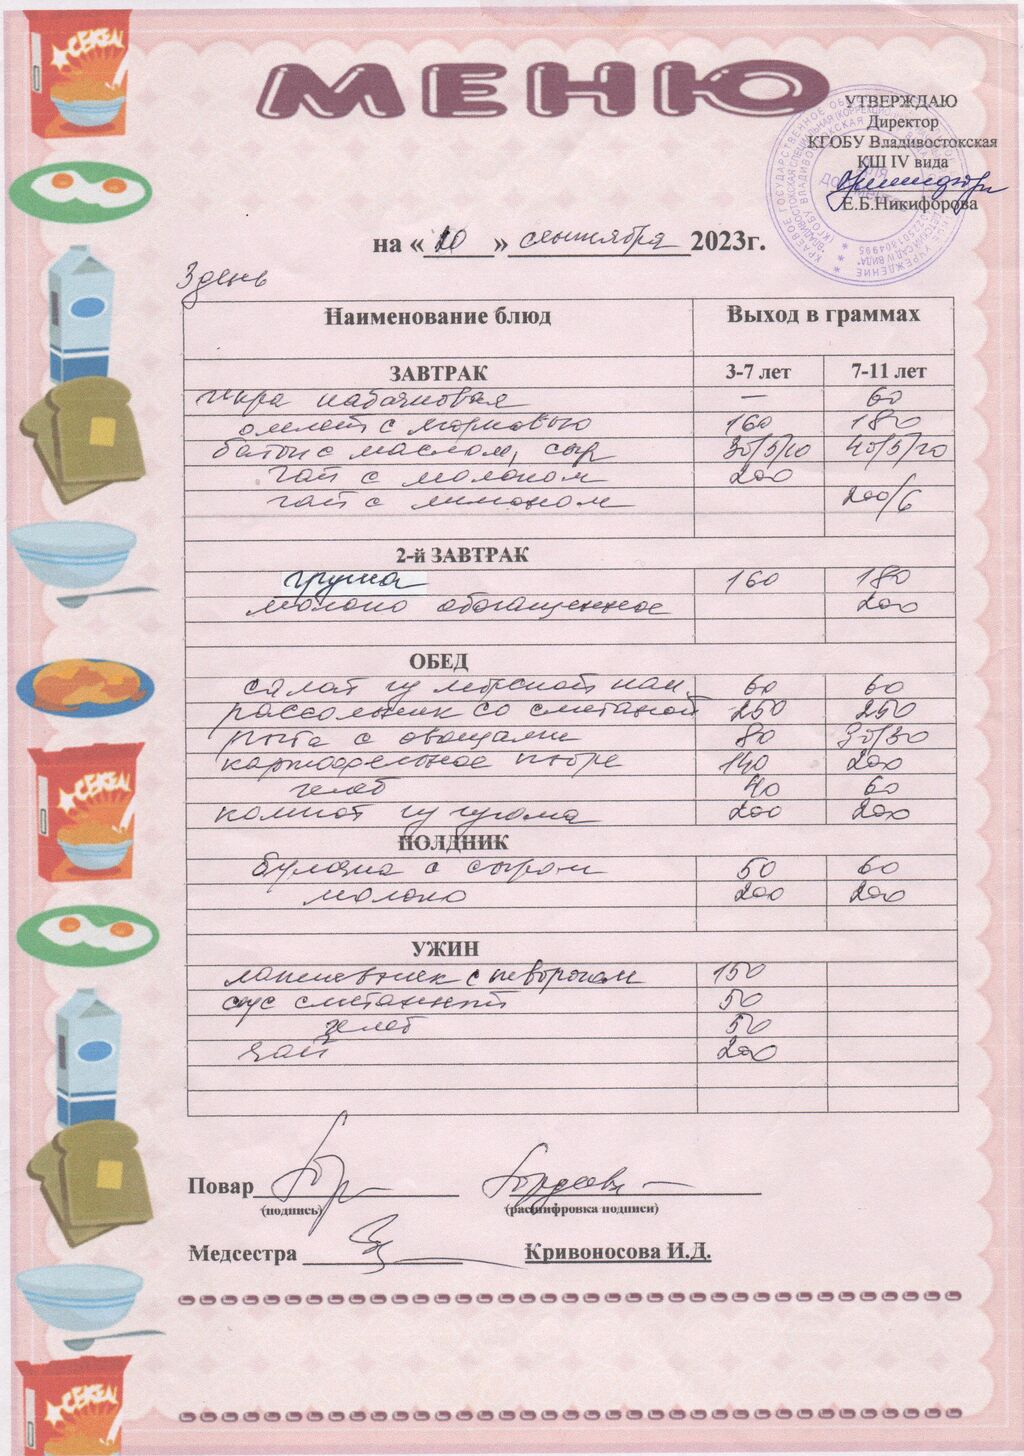 CEREAL
МЕНЮ
УТВЕРЖДАЮ
Директор
КГОБУ Владивостокская
КШ IV вида
Е.Б.Никифорова
на «20» сентября 2023г.
3 день
Наименование блюд Выход в граммах
ЗАВТРАК 3-7 лет 7-11 лет
икра кабачковая — 60
омлет с морковью 160 180
батон с маслом, сыр 30/5/10 40/5/20
чай с молоком 200
чай с лимоном 200/6
2-й ЗАВТРАК
груша 160 180
молоко обогащенное 200
ОБЕД
салат из морской кап. 60 60
рассольник со сметаной 250 250
рыба с овощами 80
картофельное пюре 140 200
хлеб 40 60
компот из изюма 200 200
ПОЛДНИК
булочка с сыром 50 60
молоко 200 200
УЖИН
лапшевник с творогом 150
соус сметанный 50
хлеб 50
чай 200
CEREAL
Повар
(подпись) (расшифровка подписи)
Медсестра Кривоносова И.Д.
CEREAL